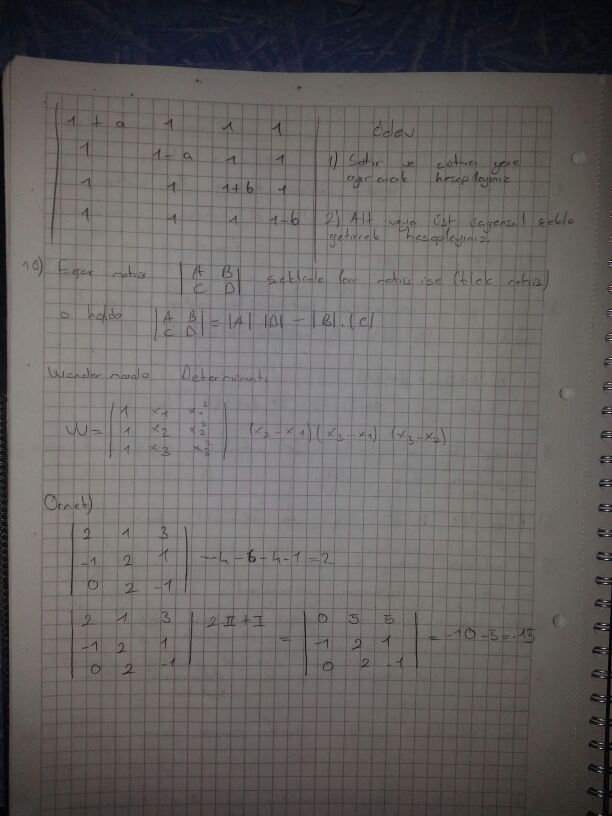 | 1 + a 1 1 1 |
| 1 1-a 1 1 |
| 1 1 1+b 1 |
| 1 1 1 1-b |
Ödev
1) Satır ve sütuna göre
ayırarak hesaplayınız
2) Alt veya üst üçgensel şekle
getirerek hesaplayınız.
10) Eğer matris | A B | şeklinde bir matris ise (blok matris)
| C D |
o halde | A B | = |A| |D| - |B|.|C|
| C D |
Wandermonde Determinantı
W = | 1 x₁ x₁² |
| 1 x₂ x₂² | (x₂-x₁) (x₃-x₁) (x₃-x₂)
| 1 x₃ x₃² |
Örnek)
| 2 1 3 |
| -1 2 1 | --4-6-4-1=2
| 0 2 -1 |
| 2 1 3 | 2II+I | 0 5 5 |
| -1 2 1 | = | -1 2 1 | = -10-5=-15
| 0 2 -1 | | 0 2 -1 |